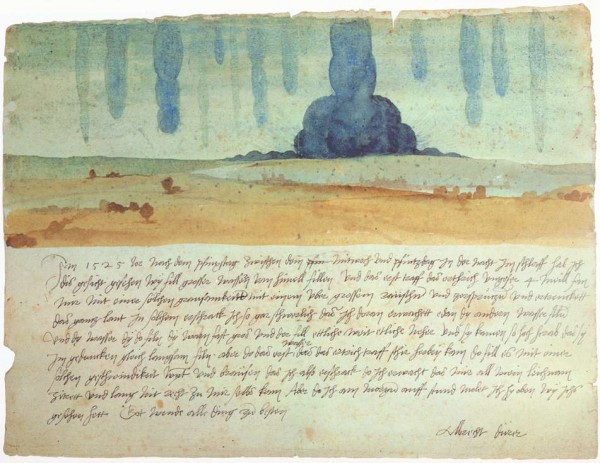 Im 1525 Jor nach dem pfinxstag zwischen dem Mitwoch und pfintzdag in der nacht im schlaff hab ich
dis gesicht gesehen wy fill grosser wassern vom himell fillen Und das erst traff das erthrich ungefer 4 meill fan
mir mit einer solchen grausamkeitt mit einem uber grossem raüschn und zersprützn und ertrenckett
das gantz lant In solchem erschrack ich so gar schwerlich das ich doran erwachett e dan dy andern wasser filn
Und dy wasser dy do filn dy warn fast gros und der fill ettliche weit etliche neher und sy kamen so hoch herab das sy
im gedancken gleich langsam filn aber do das erst wasser das das ertrich traff schir herbey kam do fill es mit einer
solchen geschwindikeit wynt und braüsen das ich also erschrack do ich erwacht das mir all mein leichnam
zitrett und lang nit recht zu mir selbs kam Aber do ich am morgen auff stund molet ich hy oben wy ichs
gesehen hett Got wende alle ding zu besten
Albrecht dürer